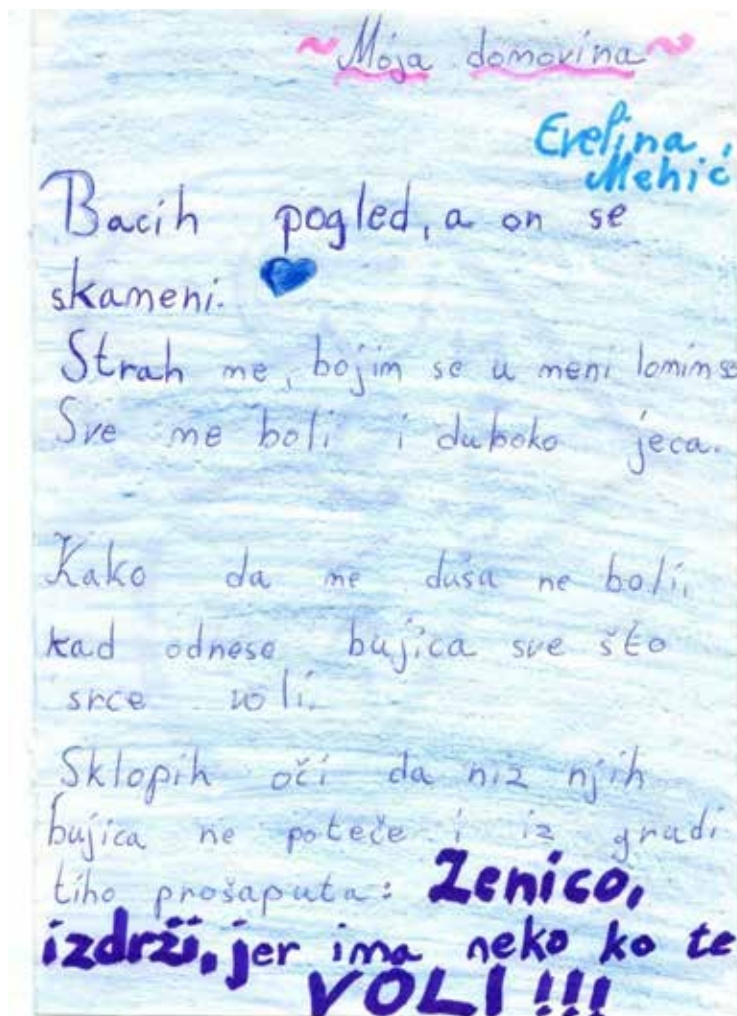 ~Moja domovina~
Evelina
Mehić
Bacih pogled, a on se
skameni.
Strah me, bojim se u meni lomim se
Sve me boli i duboko jeca.
Kako da me duša ne boli,
kad odnese bujica sve što
srce voli.
Sklopih oči da niz njih
bujica ne poteče i iz grudi
tiho prošaputa: Zenico,
izdrži, jer ima neko ko te
VOLI!!!